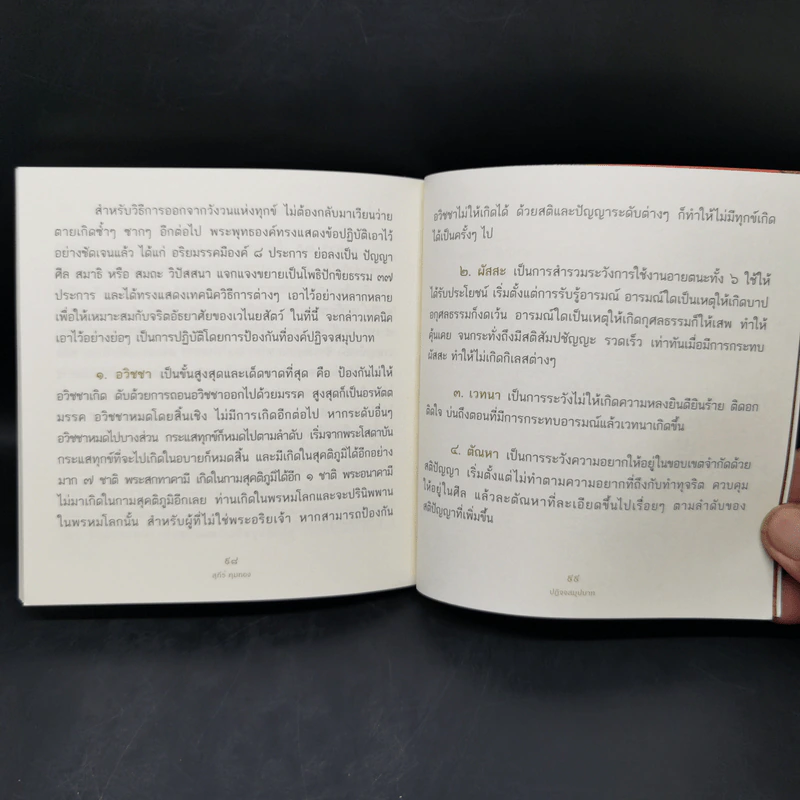 สำหรับวิธีการออกจากวังวนแห่งทุกข์ ไม่ต้องกลับมาเวียนว่าย
ตายเกิดซ้ำๆ ซากๆ อีกต่อไป พระพุทธองค์ทรงแสดงข้อปฏิบัติเอาไว้
อย่างชัดเจนแล้ว ได้แก่ อริยมรรคมีองค์ ๘ ประการ ย่อลงเป็น ปัญญา
ศีล สมาธิ หรือ สมถะ วิปัสสนา แจกแจงขยายเป็นโพธิปักขิยธรรม ๓๗
ประการ และได้ทรงแสดงเทคนิควิธีการต่างๆ เอาไว้อย่างหลากหลาย
เพื่อให้เหมาะสมกับจริตอัธยาศัยของเวไนยสัตว์ ในที่นี้ จะกล่าวเทคนิค
เอาไว้อย่างย่อๆ เป็นการปฏิบัติโดยการป้องกันที่องค์ปฏิจจสมุปบาท
๑. อวิชชา เป็นขั้นสูงสุดและเด็ดขาดที่สุด คือ ป้องกันไม่ให้
อวิชชาเกิด ดับด้วยการถอนอวิชชาออกไปด้วยมรรค สูงสุดก็เป็นอรหัตต
มรรค อวิชชาหมดโดยสิ้นเชิง ไม่มีการเกิดอีกต่อไป หากระดับอื่นๆ
อวิชชาหมดไปบางส่วน กระแสทุกข์ก็หมดไปตามลำดับ เริ่มจากพระโสดาบัน
กระแสทุกข์ที่จะไปเกิดในอบายก็หมดสิ้น และมีเกิดในสุคติภูมิได้อีกอย่าง
มาก ๗ ชาติ พระสกทาคามี เกิดในกามสุคติภูมิได้อีก ๑ ชาติ พระอนาคามี
ไม่มาเกิดในกามสุคติภูมิอีกเลย ท่านเกิดในพรหมโลกและจะปรินิพพาน
ในพรหมโลกนั้น สำหรับผู้ที่ไม่ใช่พระอริยเจ้า หากสามารถป้องกัน
๕๘
สุภีร์ ทุมทอง
อวิชชาไม่ให้เกิดได้ ด้วยสติและปัญญาระดับต่างๆ ก็ทำให้ไม่มีทุกข์เกิด
ได้เป็นครั้งๆ ไป
๒. ผัสสะ เป็นการสำรวมระวังการใช้งานอายตนะทั้ง ๖ ใช้ให้
ได้รับประโยชน์ เริ่มตั้งแต่การรับรู้อารมณ์ อารมณ์ใดเป็นเหตุให้เกิดบาป
อกุศลธรรมก็งดเว้น อารมณ์ใดเป็นเหตุให้เกิดกุศลธรรมก็ให้เสพ ทำให้
คุ้นเคย จนกระทั่งมีสติสัมปชัญญะ รวดเร็ว เท่าทันเมื่อมีการกระทบ
ผัสสะ ทำให้ไม่เกิดกิเลสต่างๆ
๓. เวทนา เป็นการระวังไม่ให้เกิดความหลงยินดียินร้าย ติดอก
ติดใจ บ่นถึงตอนที่มีการกระทบอารมณ์แล้วเวทนาเกิดขึ้น
๔. ตัณหา เป็นการระวังความอยากให้อยู่ในขอบเขตจำกัดด้วย
สติปัญญา เริ่มตั้งแต่ไม่ทำตามความอยากที่ถึงกับทำทุจริต ควบคุม
ให้อยู่ในศีล แล้วละตัณหาที่ละเอียดขึ้นไปเรื่อยๆ ตามลำดับของ
สติปัญญาที่เพิ่มขึ้น
๕๙
ปฏิจจสมุปบาท